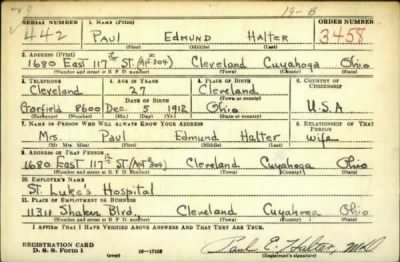 SERIAL NUMBER 1. NAME (Print) ORDER NUMBER
442 Paul Edmund Halter 3458
(First) (Middle) (Last)
2. ADDRESS (Print)
1680 East 117th St. (Apt 304) Cleveland Cuyahoga Ohio
(Number and street or R. F. D. number) (Town) (County) (State)
3. TELEPHONE 4. AGE IN YEARS 5. PLACE OF BIRTH 6. COUNTRY OF CITIZENSHIP
Cleveland 27 Cleveland
DATE OF BIRTH (Town or county)
Garfield 8600 Dec. 5 1912 Ohio U.S.A
(Exchange) (Number) (Mo.) (Day) (Yr.) (State or country)
7. NAME OF PERSON WHO WILL ALWAYS KNOW YOUR ADDRESS 8. RELATIONSHIP OF THAT PERSON
Mrs. Paul Edmund Halter wife
(Mr. Mrs. Miss) (First) (Middle) (Last)
9. ADDRESS OF THAT PERSON
1680 East 117th St (Apt 304) Cleveland Cuyahoga Ohio
(Number and street or R. F. D. number) (Town) (County) (State)
10. EMPLOYER'S NAME
St. Luke's Hospital
11. PLACE OF EMPLOYMENT OR BUSINESS
11311 Shaker Blvd. Cleveland Cuyahoga Ohio
(Number and street or R. F. D. number) (Town) (County) (State)
I AFFIRM THAT I HAVE VERIFIED ABOVE ANSWERS AND THAT THEY ARE TRUE.
REGISTRATION CARD
D. S. S. Form 1 (over) 16—17105 Paul E. Halter, MD
(Registrant's signature)